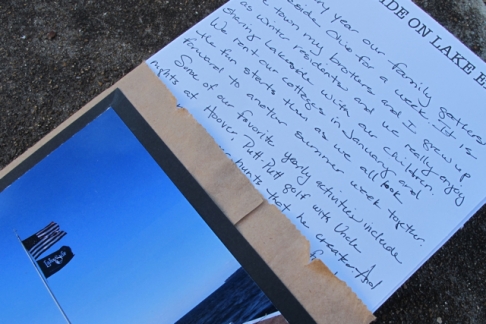 IDE ON LAKE E
year our family gathers
Lakeside Ohio for a week. It is
a town my brothers and I grew up
as winter residents and we really enjoy
sharing Lakeside with our children.
We rent our cottages in January and
the fun starts then as we all look
forward to another summer week together.
Some of our favorite yearly activities include
nights at Hoover Putt-Putt golf with Uncle
hunts that he creates. And